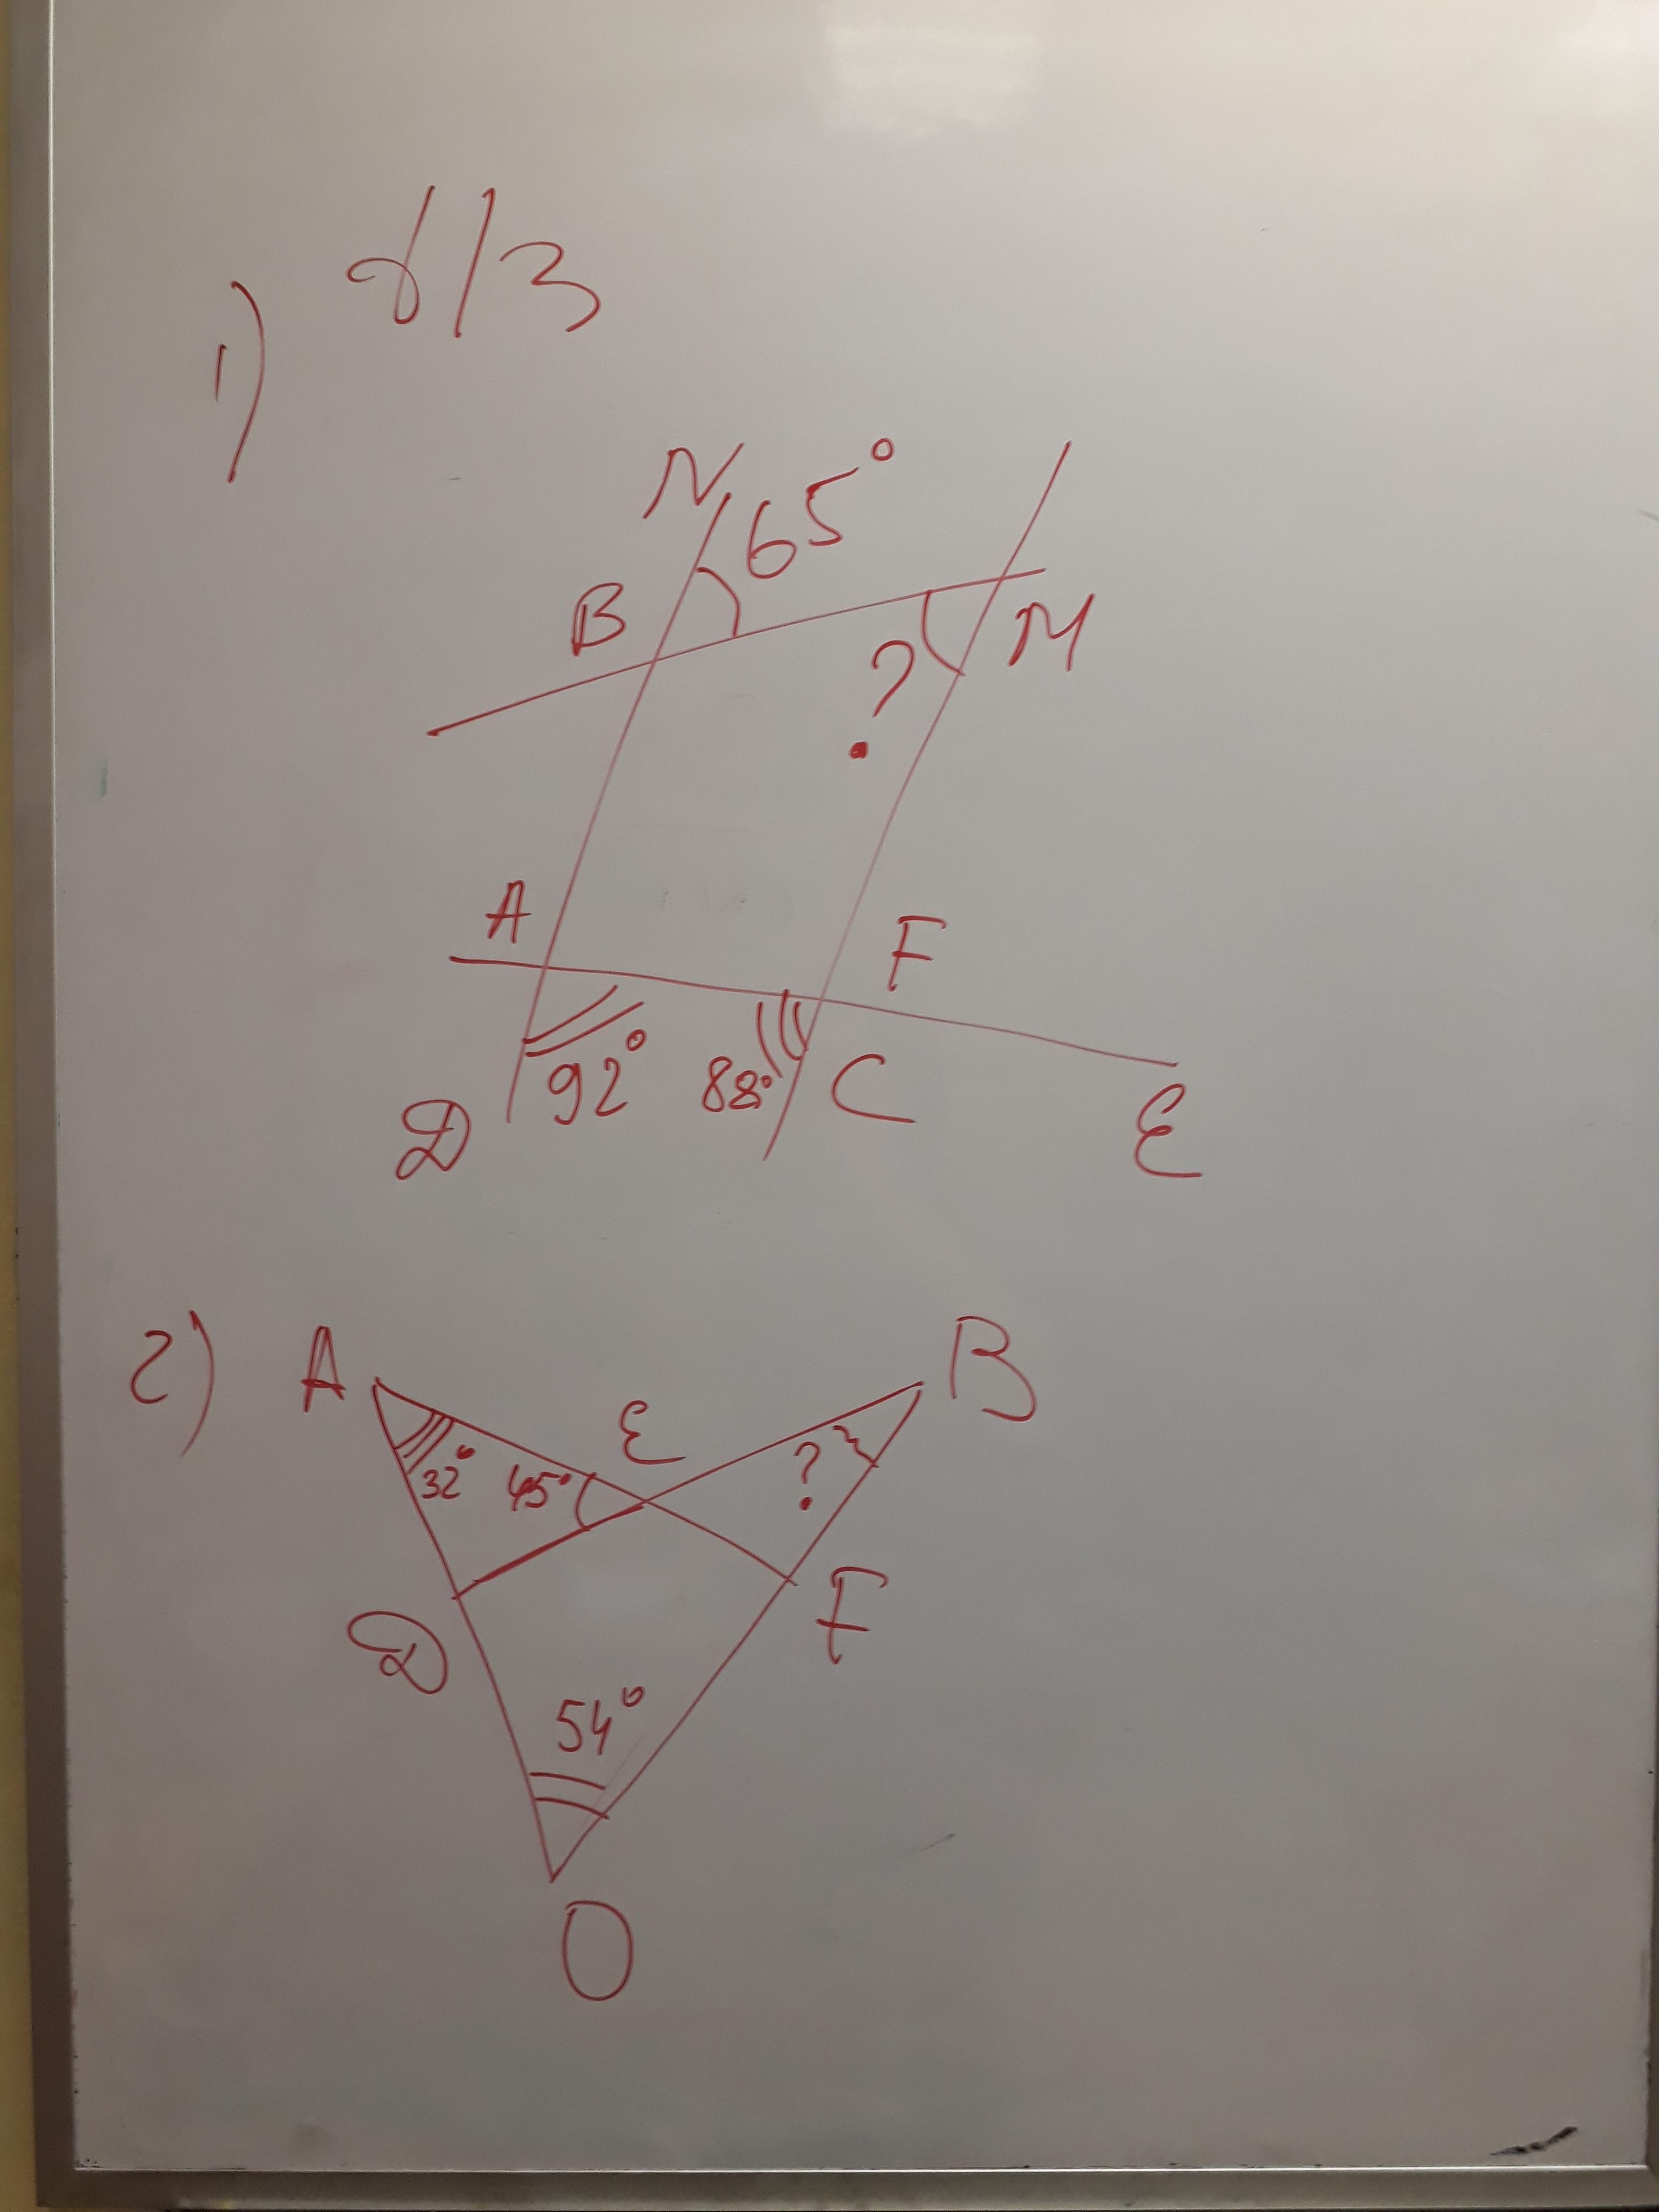 д/з
1)
N 65°
B
? M
A F
D 92° 88° C E
2) A B
E
32° 45° ?
D F
54°
O